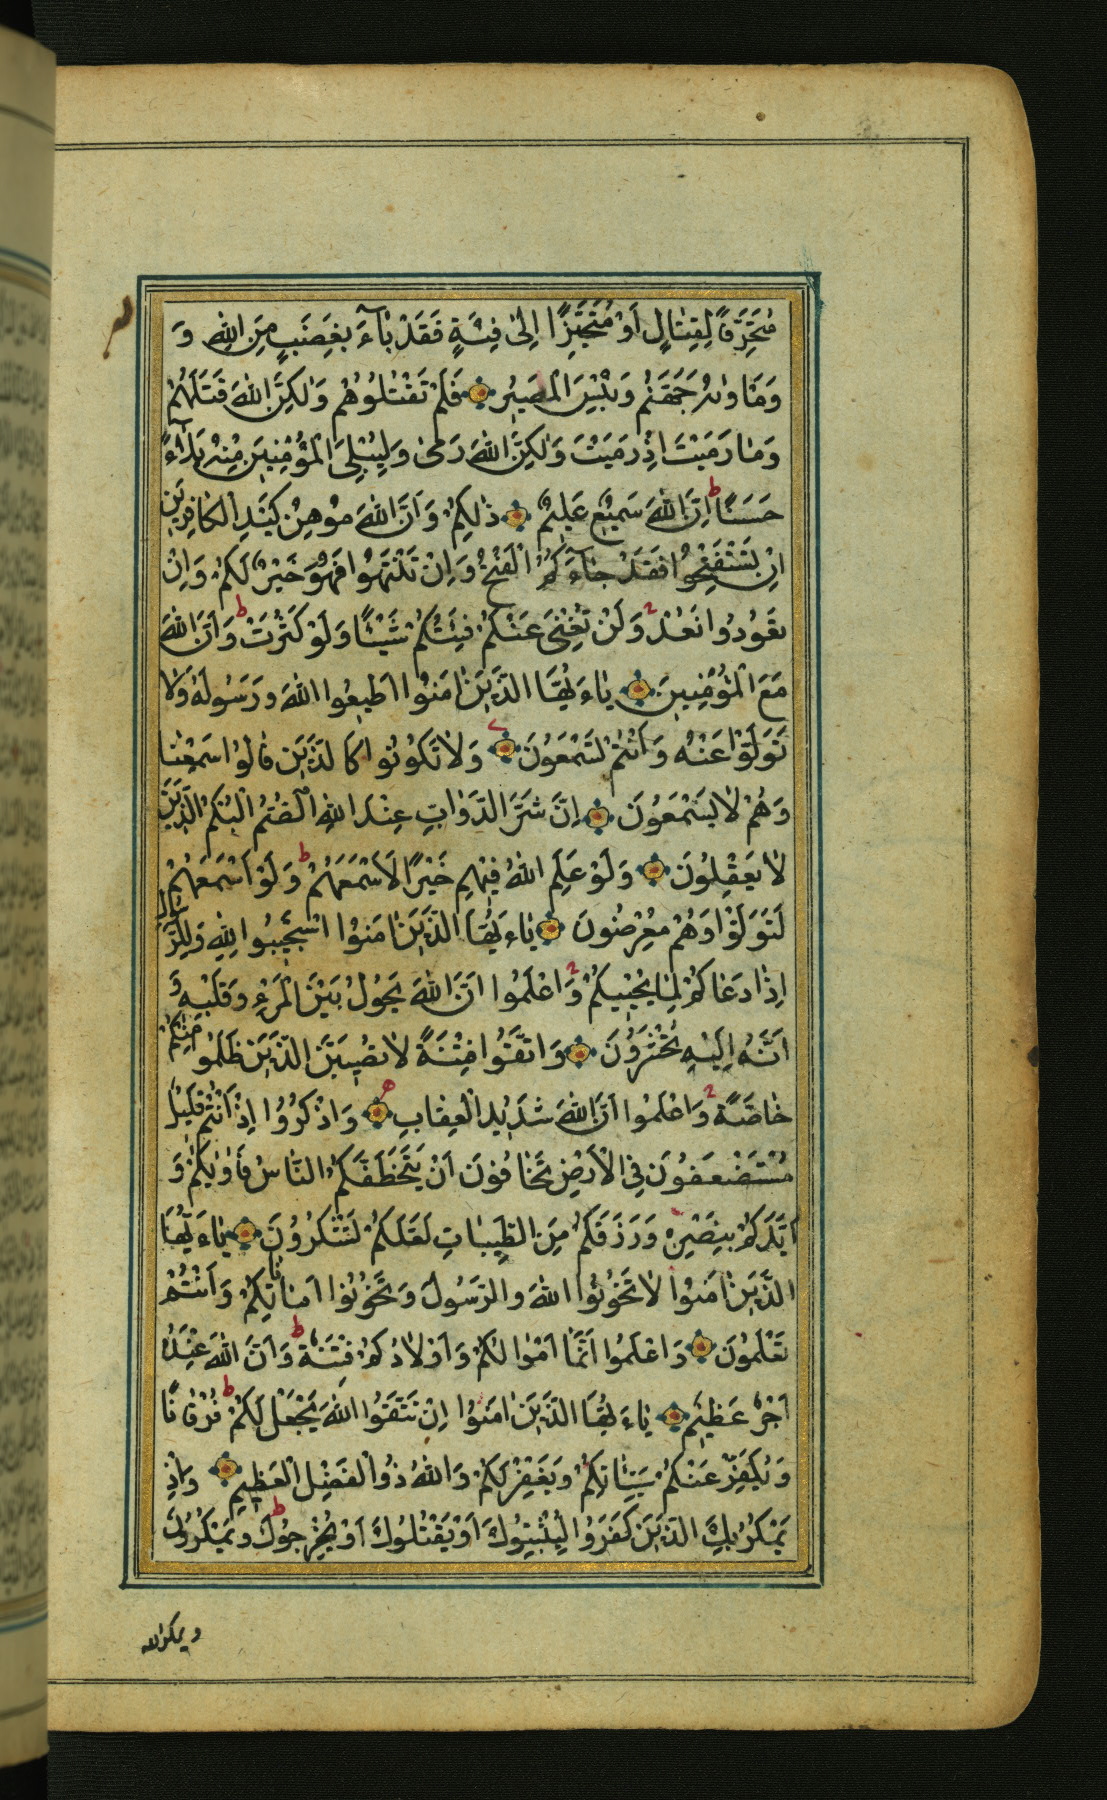 مُتَحَرِّفًا لِقِتَالٍ أَوْ مُتَحَيِّزًا إِلَىٰ فِئَةٍ فَقَدْ بَاءَ بِغَضَبٍ مِنَ اللّٰهِ وَ
وَمَاوٰىهُ جَهَنَّمُ وَبِئْسَ الْمَصِيرُ فَلَمْ تَقْتُلُوهُمْ وَلٰكِنَّ اللّٰهَ قَتَلَهُمْ
وَمَا رَمَيْتَ اِذْ رَمَيْتَ وَلٰكِنَّ اللّٰهَ رَمىٰ وَلِيُبْلِىَ الْمُؤْمِنِينَ مِنْهُ بَلَاءً
حَسَنًا ط اِنَّ اللّٰهَ سَمِيعٌ عَلِيمٌ ذٰلِكُمْ وَاَنَّ اللّٰهَ مُوهِنُ كَيْدِ الْكَافِرِينَ
اِنْ تَسْتَفْتِحُوا فَقَدْ جَاءَكُمُ الْفَتْحُ وَاِنْ تَنْتَهُوا فَهُوَ خَيْرٌ لَكُمْ وَاِنْ
تَعُودُوا نَعُدْ وَلَنْ تُغْنِىَ عَنْكُمْ فِئَتُكُمْ شَيْئًا وَلَوْ كَثُرَتْ ط وَاَنَّ اللّٰهَ
مَعَ الْمُؤْمِنِينَ يَاءَيُّهَا الَّذِينَ اٰمَنُوا اَطِيعُوا اللّٰهَ وَرَسُولَهُ وَلَا
تَوَلَّوْا عَنْهُ وَاَنْتُمْ تَسْمَعُونَ وَلَا تَكُونُوا كَالَّذِينَ قَالُوا سَمِعْنَا
وَهُمْ لَا يَسْمَعُونَ اِنَّ شَرَّ الدَّوَابِّ عِنْدَ اللّٰهِ الصُّمُّ الْبُكْمُ الَّذِينَ
لَا يَعْقِلُونَ وَلَوْ عَلِمَ اللّٰهُ فِيهِمْ خَيْرًا لَاَسْمَعَهُمْ ط وَلَوْ اَسْمَعَهُمْ
لَتَوَلَّوْا وَهُمْ مُعْرِضُونَ يَاءَيُّهَا الَّذِينَ اٰمَنُوا اسْتَجِيبُوا لِلّٰهِ وَلِلرَّسُولِ
اِذَا دَعَاكُمْ لِمَا يُحْيِيكُمْ وَاعْلَمُوا اَنَّ اللّٰهَ يَحُولُ بَيْنَ الْمَرْءِ وَقَلْبِهِ وَ
اَنَّهُ اِلَيْهِ تُحْشَرُونَ وَاتَّقُوا فِتْنَةً لَا تُصِيبَنَّ الَّذِينَ ظَلَمُوا مِنْكُمْ
خَاصَّةً وَاعْلَمُوا اَنَّ اللّٰهَ شَدِيدُ الْعِقَابِ وَاذْكُرُوا اِذْ اَنْتُمْ قَلِيلٌ
مُسْتَضْعَفُونَ فِى الْاَرْضِ تَخَافُونَ اَنْ يَتَخَطَّفَكُمُ النَّاسُ فَاٰوٰيكُمْ وَ
اَيَّدَكُمْ بِنَصْرِهِ وَرَزَقَكُمْ مِنَ الطَّيِّبَاتِ لَعَلَّكُمْ تَشْكُرُونَ يَاءَيُّهَا
الَّذِينَ اٰمَنُوا لَا تَخُونُوا اللّٰهَ وَالرَّسُولَ وَتَخُونُوا اَمَانَاتِكُمْ وَاَنْتُمْ
تَعْلَمُونَ وَاعْلَمُوا اَنَّمَا اَمْوَالُكُمْ وَاَوْلَادُكُمْ فِتْنَةٌ ط وَاَنَّ اللّٰهَ عِنْدَهُ
اَجْرٌ عَظِيمٌ يَاءَيُّهَا الَّذِينَ اٰمَنُوا اِنْ تَتَّقُوا اللّٰهَ يَجْعَلْ لَكُمْ ط فُرْقَانًا
وَيُكَفِّرْ عَنْكُمْ سَيِّئَاتِكُمْ وَيَغْفِرْ لَكُمْ وَاللّٰهُ ذُوالْفَضْلِ الْعَظِيمِ وَاِذْ
يَمْكُرُ بِكَ الَّذِينَ كَفَرُوا لِيُثْبِتُوكَ اَوْ يَقْتُلُوكَ اَوْ يُخْرِجُوكَ ط وَيَمْكُرُونَ
ويمكر الله